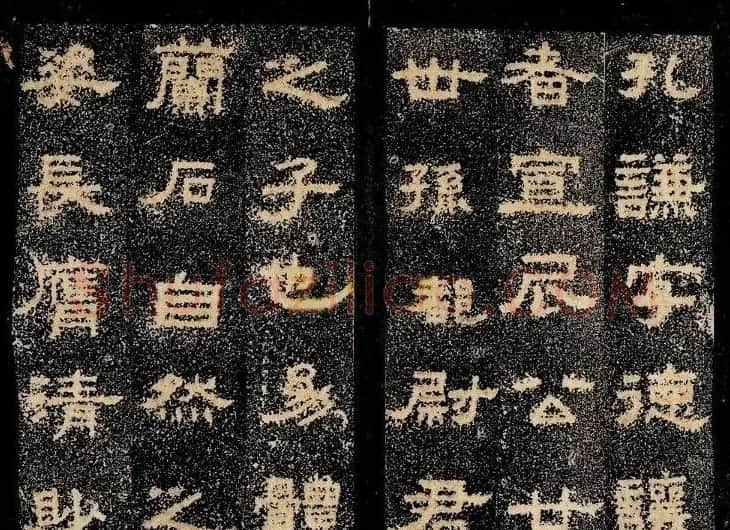 孔謙字德讓
者宣尼公廿
世孫都尉君
之子也幼體
蘭石自然之
姿長膺清妙
Shufaziliao.COM